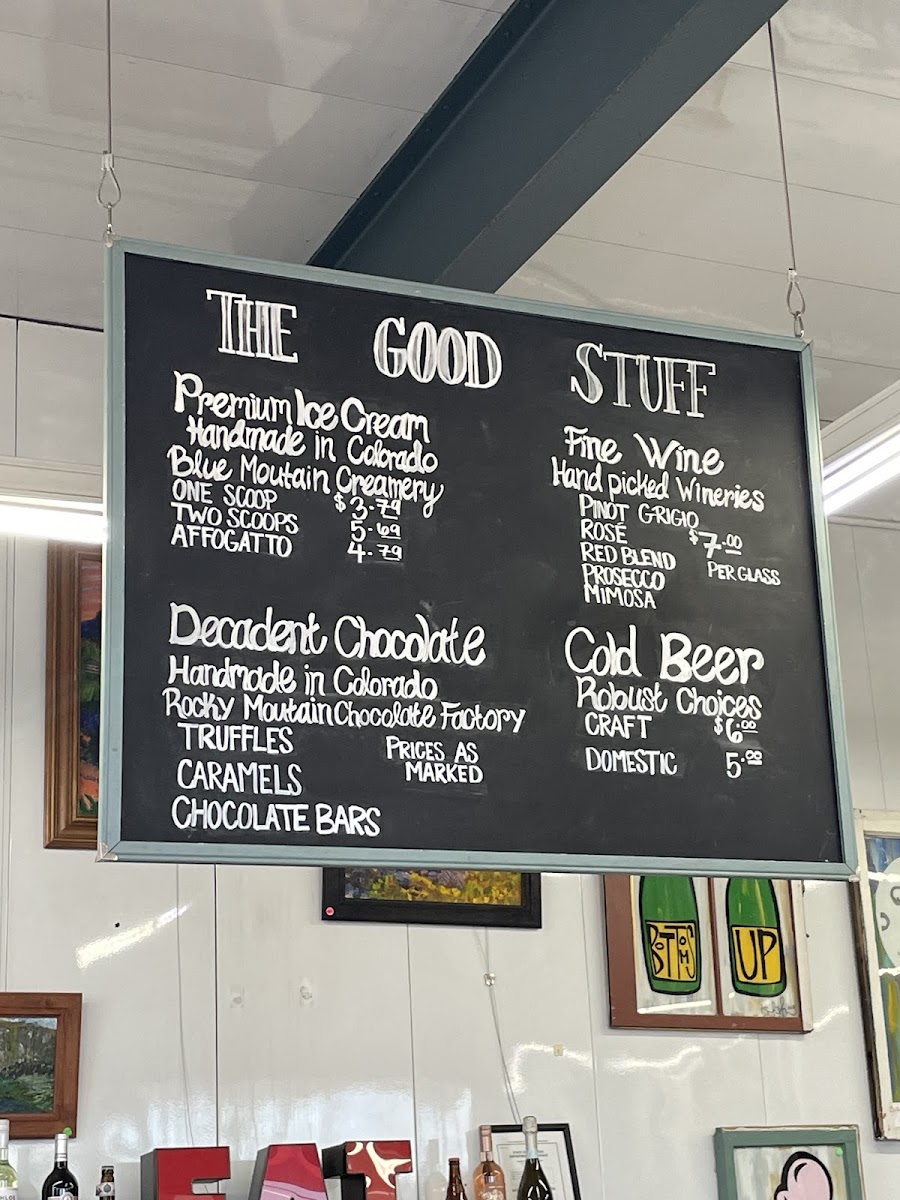 THE GOOD STUFF
Premium Ice Cream
Handmade in Colorado
Blue Moutain Creamery
ONE SCOOP $3.79
TWO SCOOPS 5.69
AFFOGATTO 4.79
Decadent Chocolate
Handmade in Colorado
Rocky Moutain Chocolate Factory
TRUFFLES
CARAMELS
CHOCOLATE BARS
PRICES AS
MARKED
Fine Wine
Hand picked Wineries
PINOT GRIGIO
ROSÉ
RED BLEND
PROSECCO
MIMOSA
$7.00
PER GLASS
Cold Beer
Robust Choices
CRAFT $6.00
DOMESTIC 5.00
BOTTOMS
UP
EAT